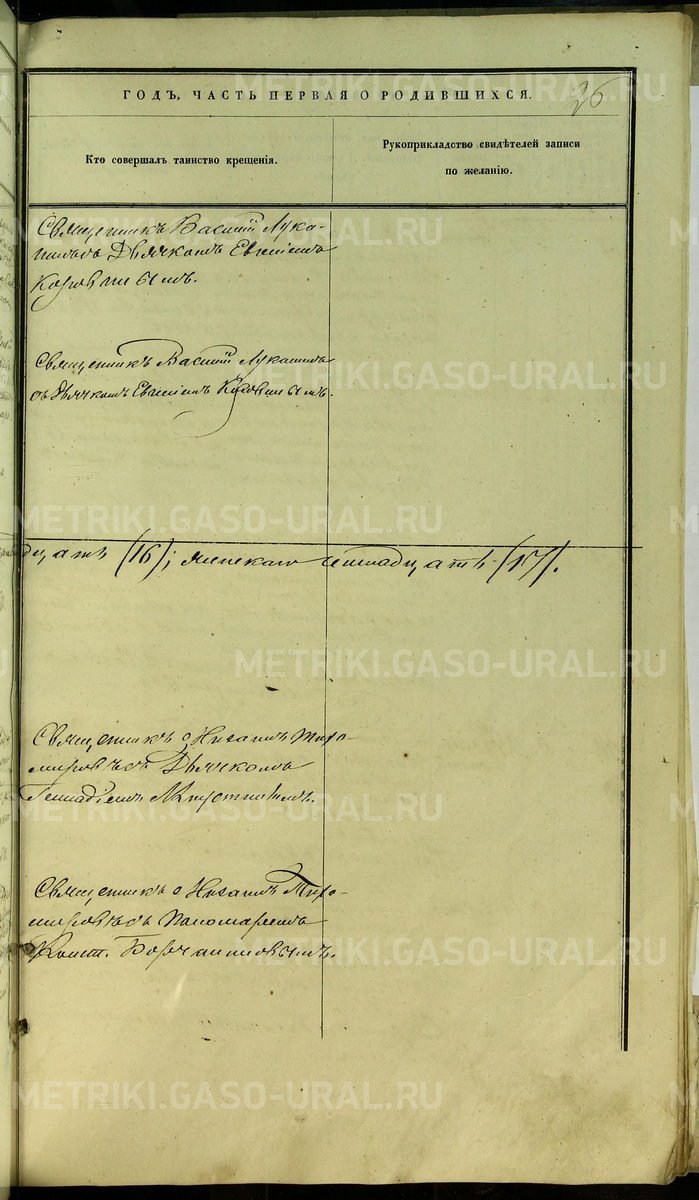 ГОДЪ, ЧАСТЬ ПЕРВАЯ О РОДИВШИХСЯ.
26
Кто совершалъ таинство крещенія.
Рукоприкладство свидѣтелей записи
по желанію.
Священникъ Василій Лука-
нинъ съ Дьячкомъ Евгеніемъ
Коровинымъ.
Священникъ Василій Луканинъ
съ Дьячкомъ Евгеніемъ Коровинымъ.
дцать (16); женскаго (17).
Священникъ о Тихо-
мировъ съ Дьячкомъ
Геннадіемъ
Священникъ о Тихо-
мировъ съ Пономаремъ
Конст.
METRIKI.GASO-URAL.RU